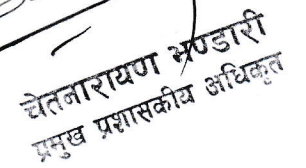 चेतनारायण भण्डारी
प्रमुख प्रशासकीय अधिकृत